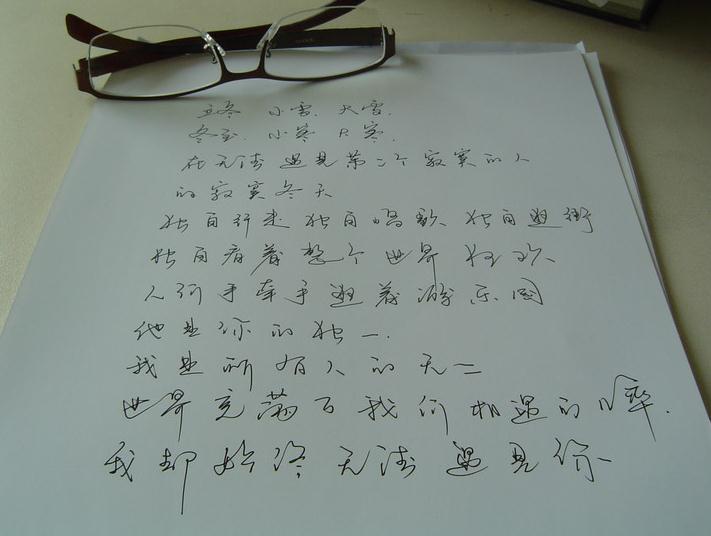 立冬 小雪 大雪.
冬至. 小寒 大寒.
在无法遇见第二个寂寞的人
的寂寞冬天
独自行走 独自唱歌 独自逛街
独自看着整个世界狂欢
人们手牵手逛着游乐园
他是你的独一.
我是所有人的无二
世界充满了我们相遇的
我却始终无法遇见你